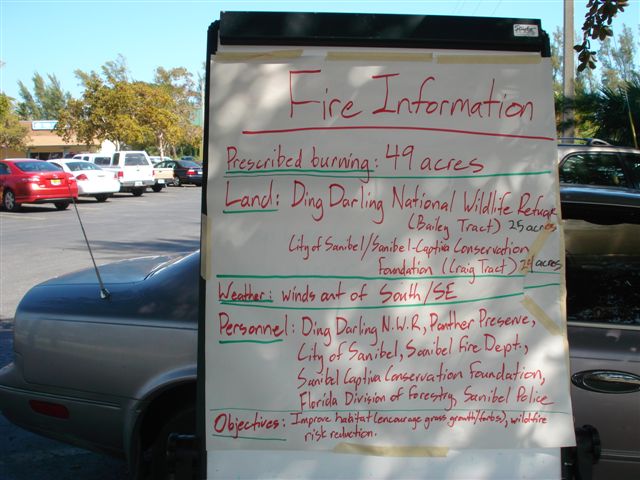 Fire Information
Prescribed burning: 49 acres
Land: Ding Darling National Wildlife Refuge
(Bailey Tract) 25 acres
City of Sanibel/Sanibel-Captiva Conservation
Foundation (Craig Tract) 24 acres
Weather: winds out of South/SE
Personnel: Ding Darling N.W.R, Panther Preserve,
City of Sanibel, Sanibel Fire Dept.,
Sanibel Captiva Conservation Foundation,
Florida Division of Forestry, Sanibel Police
Objectives: Improve habitat (encourage grass growth/forbs), wildfire
risk reduction.